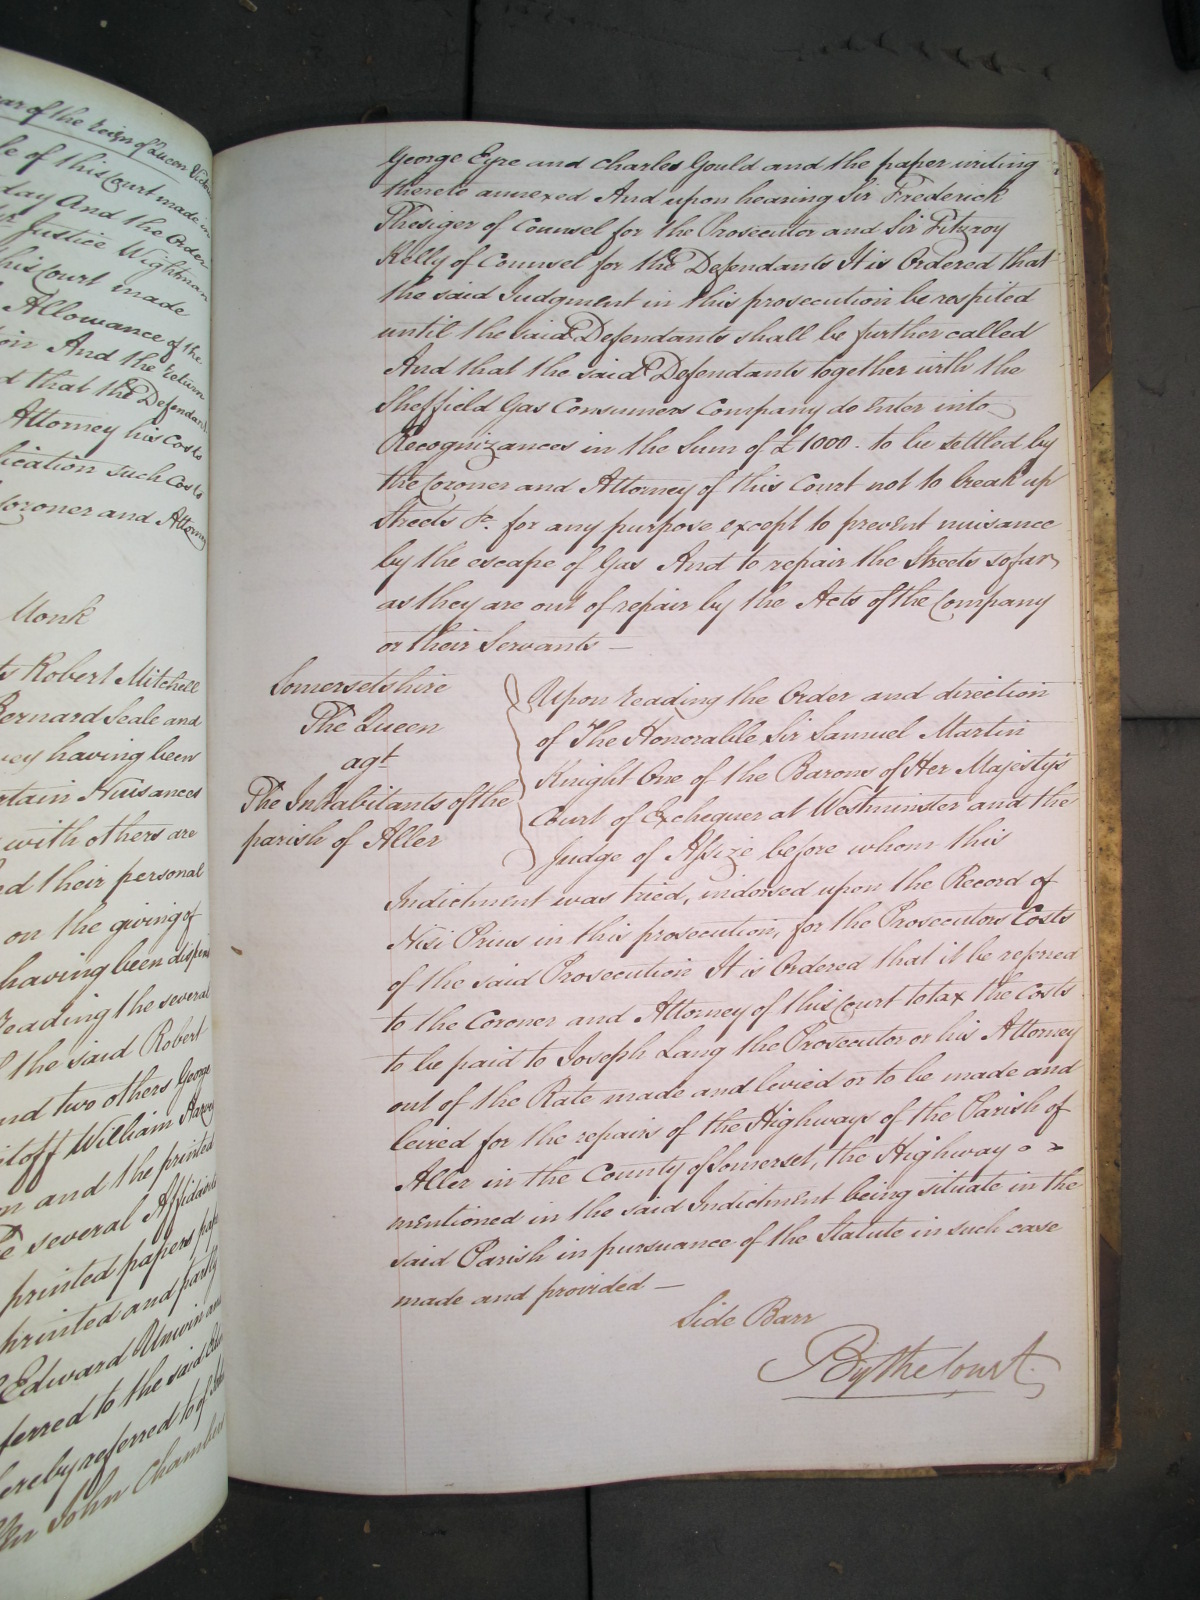 ear of the Reign of Queen
le of this Court made in
day And the Order
Justice Wightman
his Court made
Allowance of the
oir And the Return
d that the Defendants
Attorney his Costs
ication such Costs
Coroner and Attorney
Monk
ts Robert Mitchell
Bernard Seale and
vey having been
rtain Nuisances
with others are
d their personal
on the giving of
having been dispens
reading the several
the said Robert
and two others George
toff William Harvey
n and the printed
e several Affidavits
printed papers
printed and partly
Edward Unwin an
ferred to the said
hereby referred to of
John Chambers
George Eyre and Charles Gould and the paper writing
thereto annexed And upon hearing Sir Frederick
Thesiger of Counsel for the Prosecutor and Sir Fitzroy
Kelly of Counsel for the Defendants It is Ordered that
the said Judgment in this prosecution be respited
until the said Defendants shall be further called
And that the said Defendants together with the
Sheffield Gas Consumers Company do Enter into
Recognizances in the Sum of £1000. to be settled by
the Coroner and Attorney of this Court not to break up
Streets &c. for any purpose except to prevent nuisance
by the escape of Gas And to repair the Streets so far
as they are out of repair by the Acts of the Company
or their Servants —
Somersetshire
The Queen
agt
The Inhabitants of the
parish of Aller
Upon reading the Order and direction
of The Honorable Sir Samuel Martin
Knight One of the Barons of Her Majesty's
Court of Exchequer at Westminster and the
Judge of Assize before whom this
Indictment was tried, indorsed upon the Record of
Nisi Prius in this prosecution, for the Prosecutors Costs
of the said Prosecution It is Ordered that it be referred
to the Coroner and Attorney of this Court to tax the Costs
to be paid to Joseph Lang the Prosecutor or his Attorney
out of the Rate made and levied or to be made and
levied for the repairs of the Highways of the Parish of
Aller in the County of Somerset, the Highway
mentioned in the said Indictment being situate in the
said Parish in pursuance of the Statute in such case
made and provided —
Side Barr
By the Court.